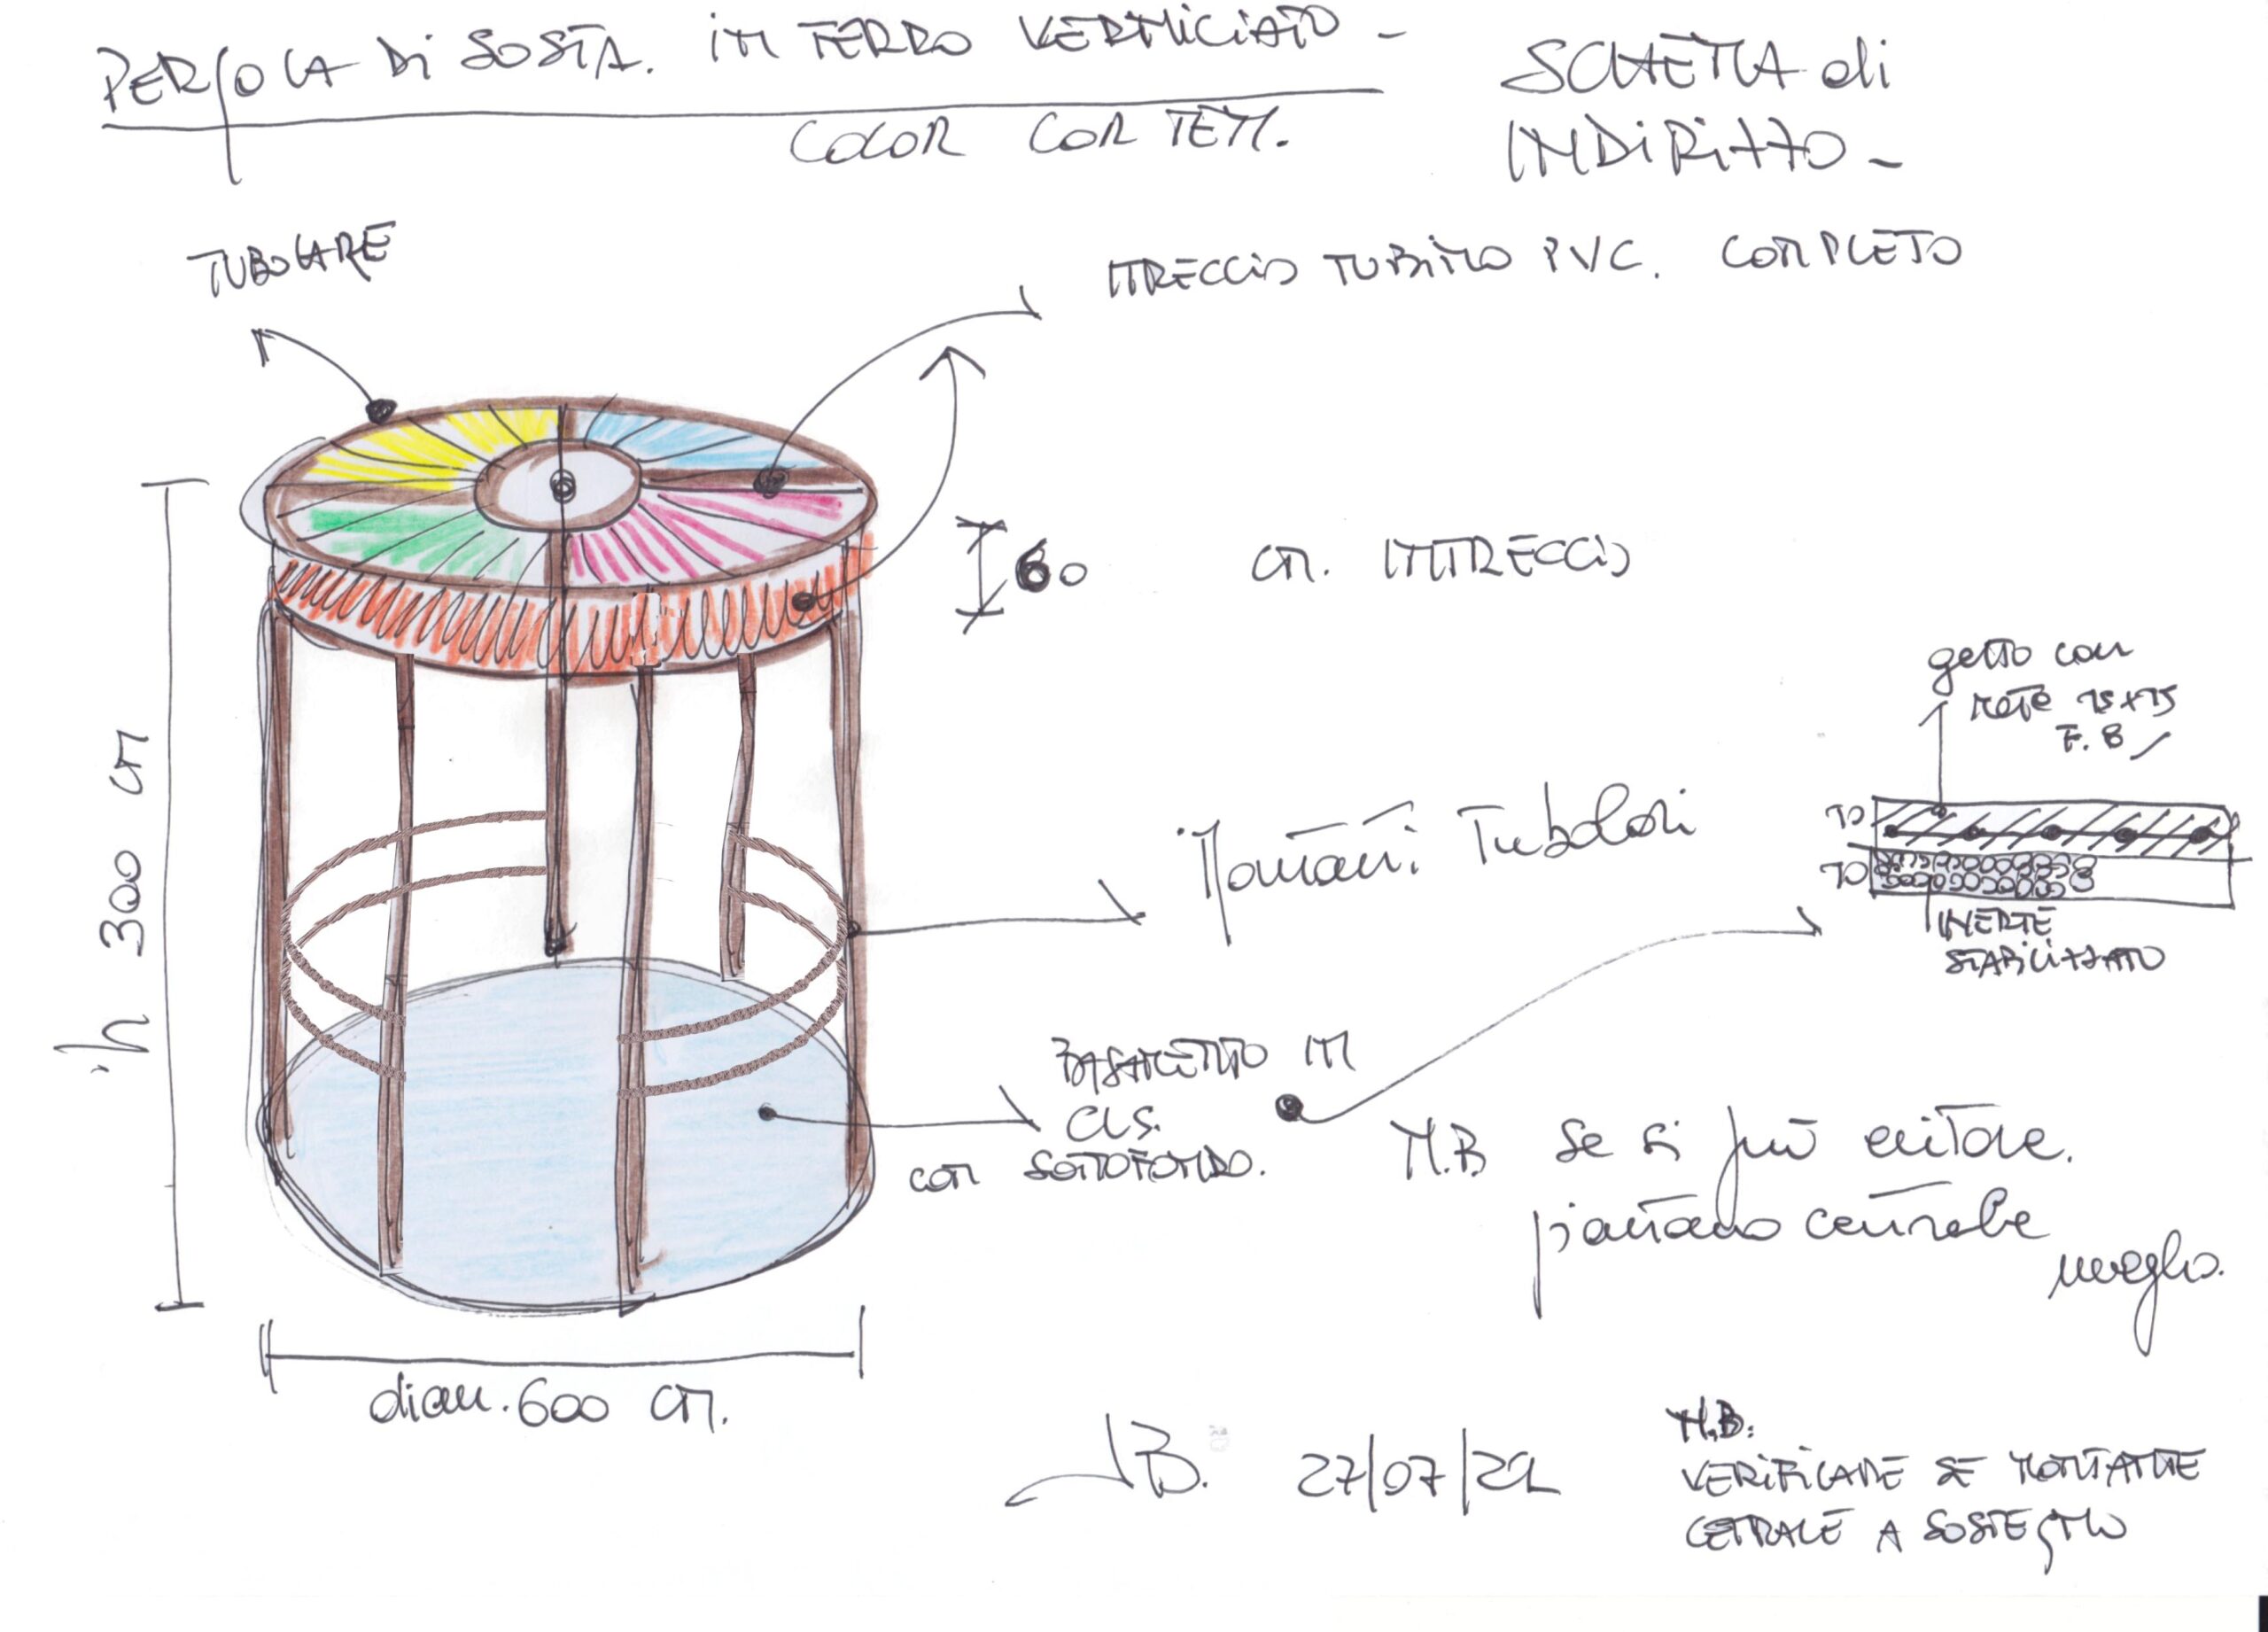 PERgOLA Di SOSTA. iN FERRO VERNiCiATO -
COLOR COR TEN.
SCHEMA di
INDiRizzO -
TUBOLARE
ITRECCiO TUBiNO PVC. COMPLETO
60 CM. INTRECCiO
h 300 CM
getto con
RETE 15x15
F. 8
10
10
INERTE
STABiLIzzATO
Montanti Tubolari
BASAMENTO IN
CLS.
CON SOTTOFONDO.
N.B se si può evitare.
piantano centrale
meglio.
diam. 600 CM.
B. 27/07/22
N.B.
VERiFiCARE SE MONTANTE
CETRALE A SOSTEgNO